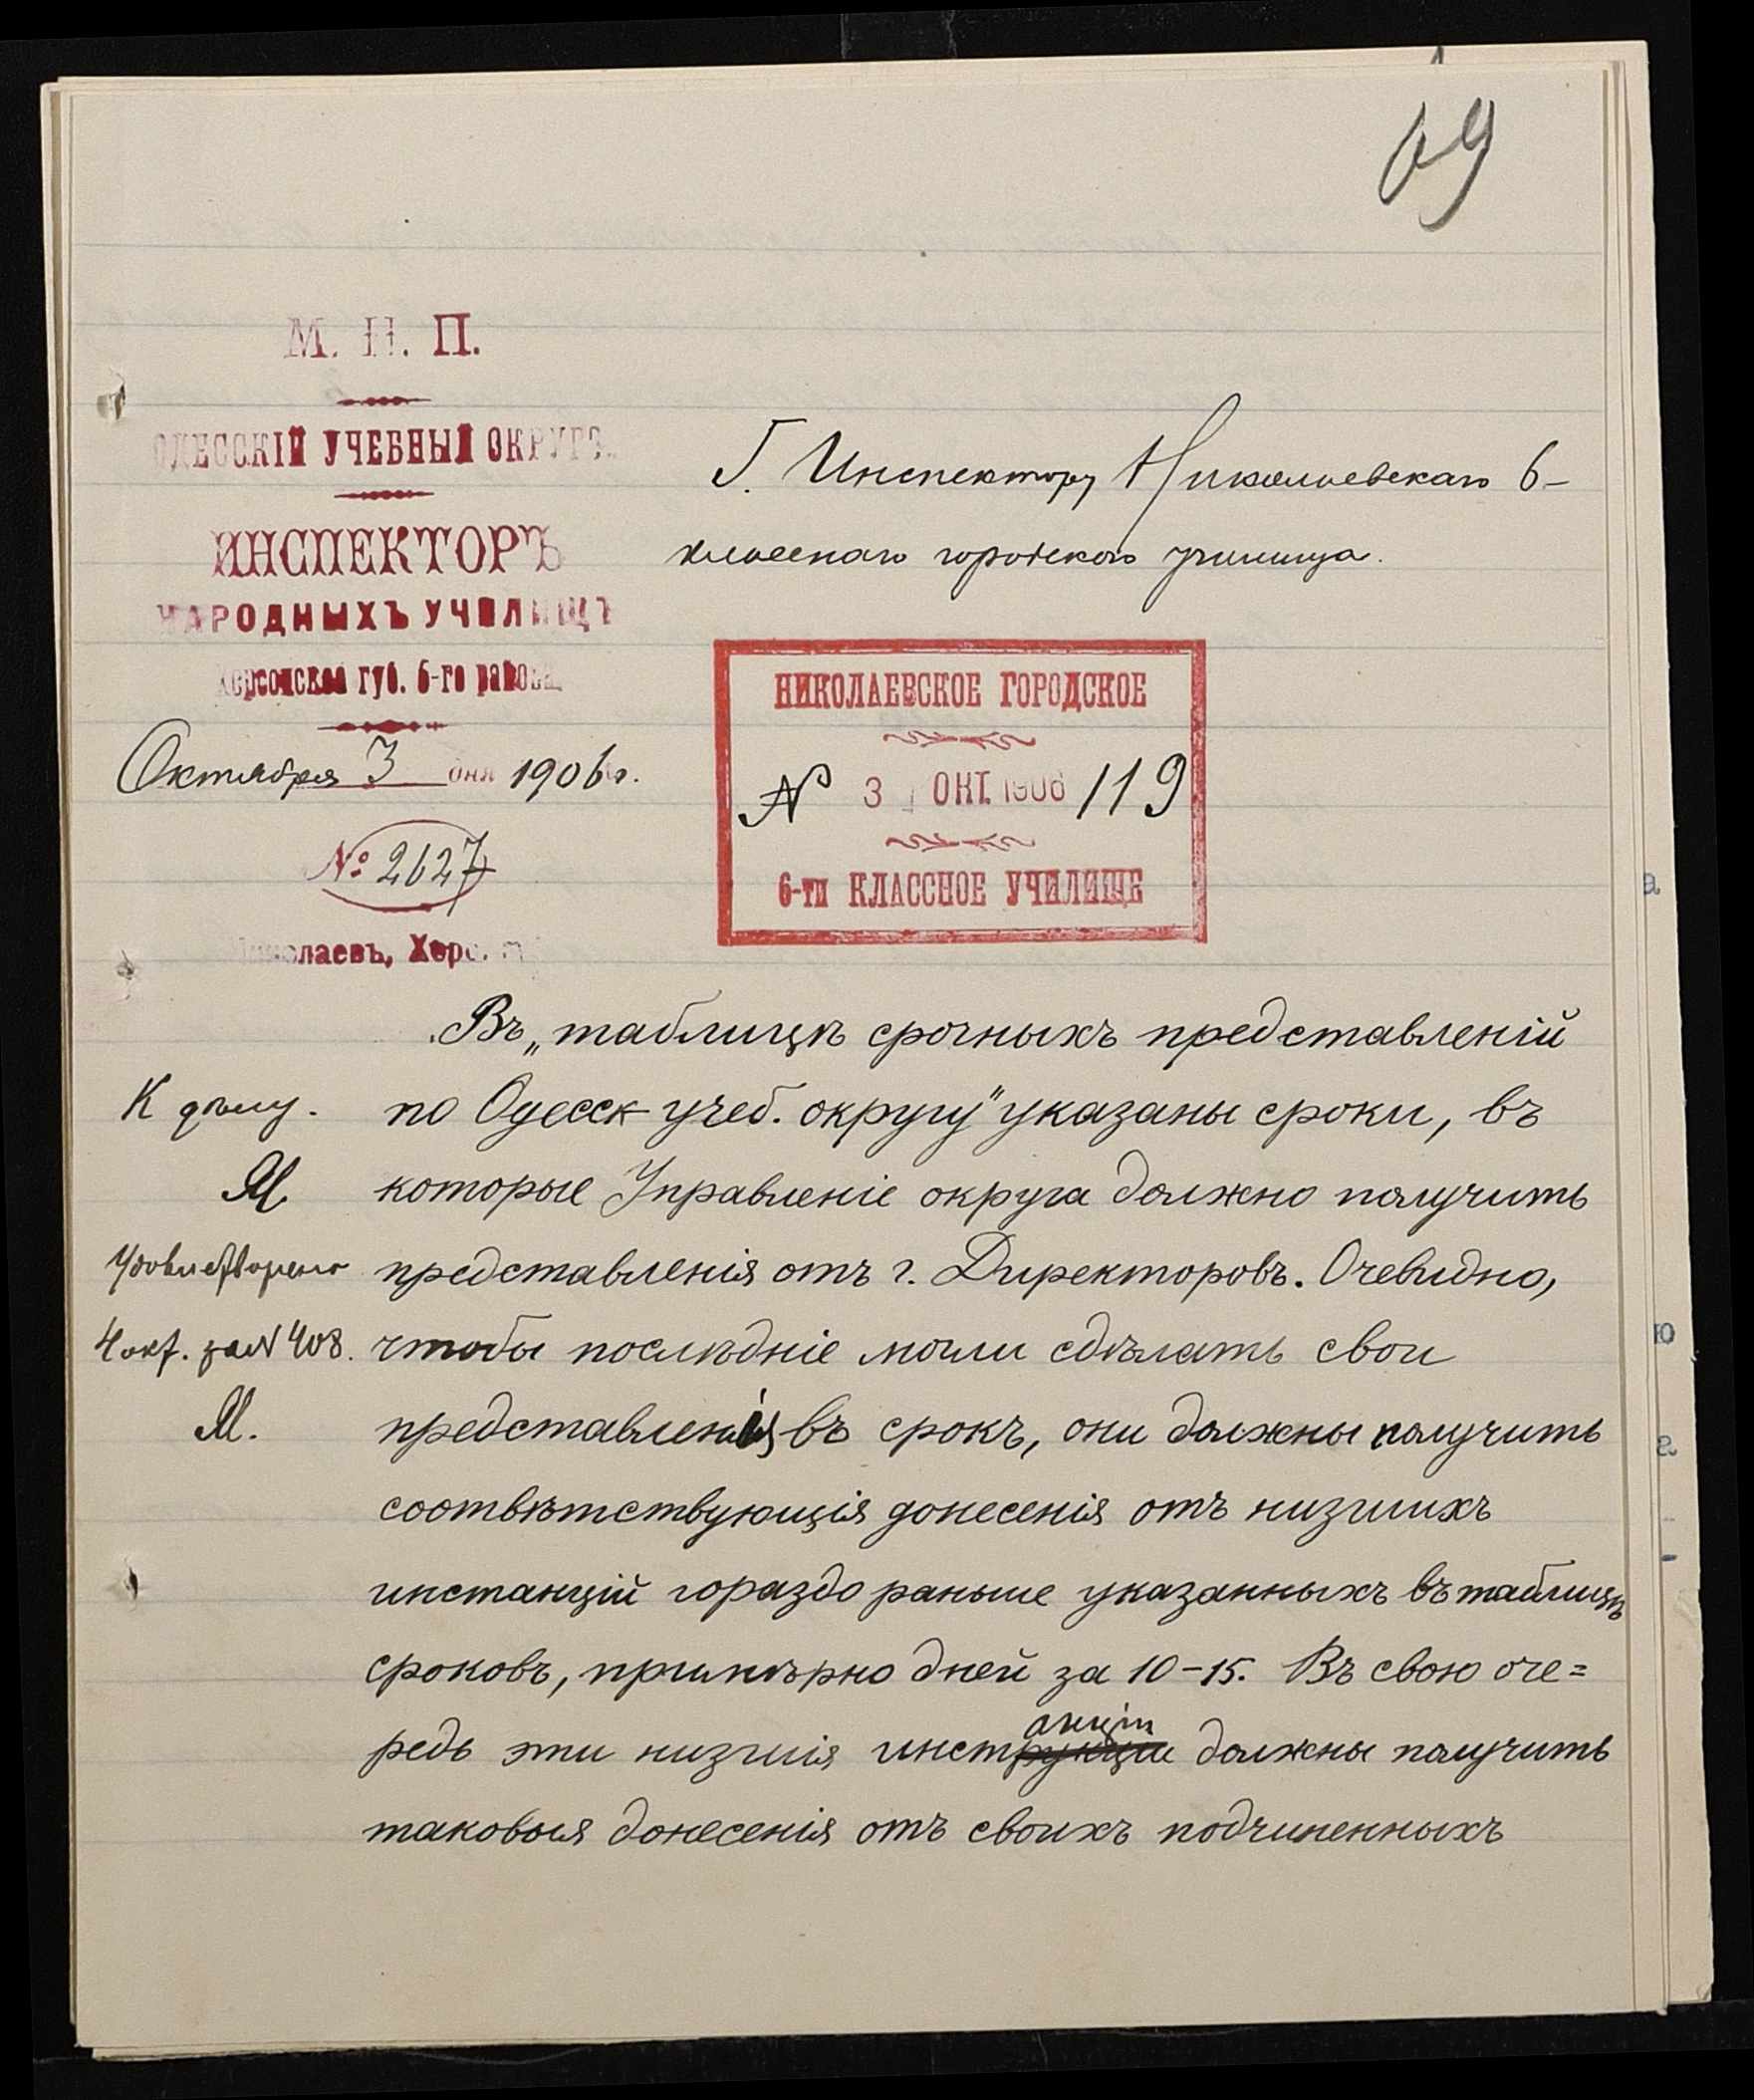 69
М. Н. П.
ОДЕССКІЙ УЧЕБНЫЙ ОКРУГЪ.
ИНСПЕКТОРЪ
НАРОДНЫХЪ УЧИЛИЩЪ
Херсонской губ. 6-го района
Октября 3 дня 1906 г.
№ 2627
Николаевъ, Херс. г.
Г. Инспектору Николаевскаго 6-
класснаго городского училища.
НИКОЛАЕВСКОЕ ГОРОДСКОЕ
№ 3 ОКТ. 1906 119
6-ти КЛАССНОЕ УЧИЛИЩЕ
Въ „таблицѣ срочныхъ представленій
по Одесск учеб. округу" указаны сроки, въ
которые Управленіе округа должно получить
представленія отъ г. Директоровъ. Очевидно,
чтобы послѣдніе могли сдѣлать свои
представленія въ срокъ, они должны получить
соотвѣтствующія донесенія отъ низшихъ
инстанцій гораздо раньше указанныхъ въ таблицѣ
сроковъ, примѣрно дней за 10-15. Въ свою оче=
редь эти низшія инструкціи анціи должны получить
таковыя донесенія отъ своихъ подчиненныхъ
К дѣлу.
Удовлетворено
4 окт. за № 408.